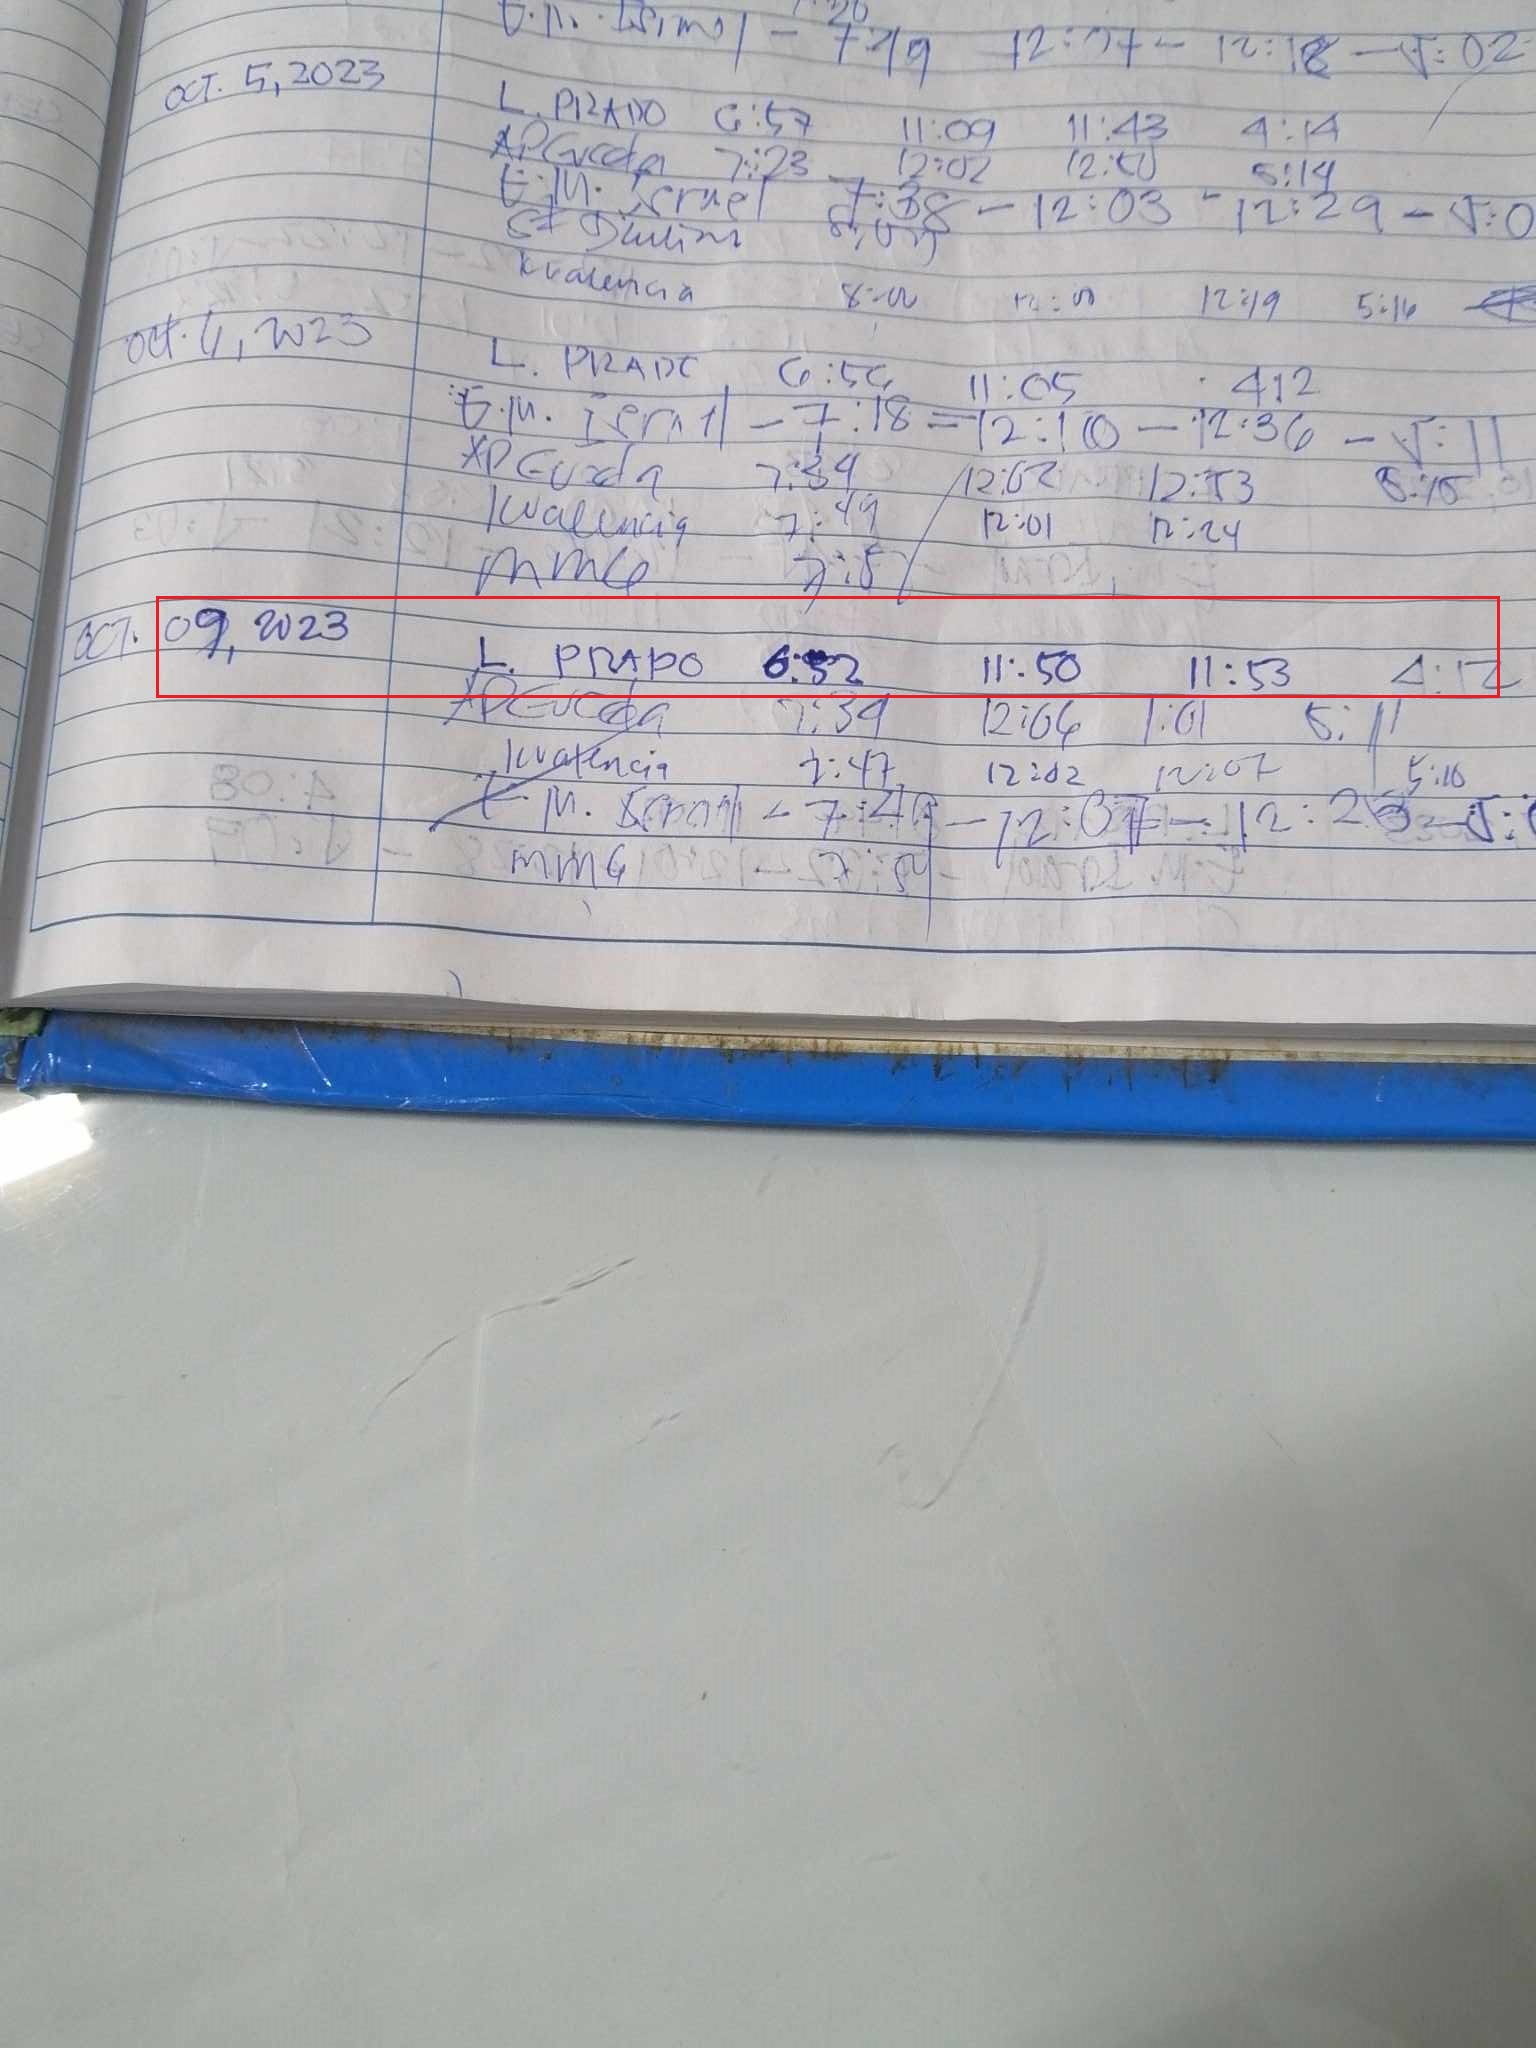 7:20
E.M. Israel - 7:49 12:07 - 12:18 - 5:02
OCT. 5, 2023
L. PRADO 6:57 11:09 11:43 4:14
7:23 12:02 12:50 5:14
E.M. Israel 7:38 - 12:03 - 12:29 - 5:0
kvalencia 8:00 12:01 12:19 5:16
Oct. 6, 2023
L. PRADO 6:56 11:05 412
E.M. Israel - 7:18 = 12:10 - 12:36 - 5:11
7:34 12:02 12:53 5:15
kvalencia 7:49 12:01 12:24
MMG 7:5
OCT. 09, 2023
L. PRADO 6:52 11:50 11:53 4:12
7:39 12:06 1:01 5:11
kvalencia 7:47 12:02 12:07 5:10
E.M. Israel - 7:49 - 12:07 - 12:23 - 5:0
MMG